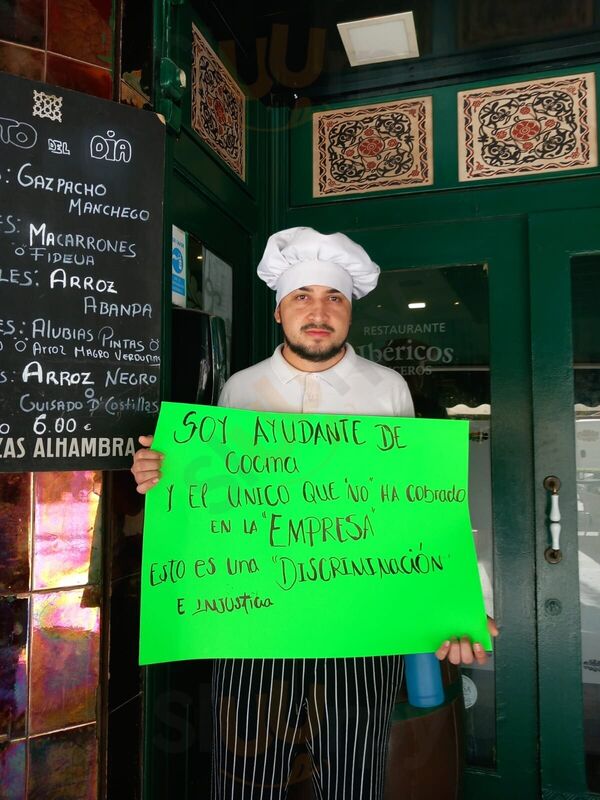 TO DEL DIA
: GAZPACHO
MANCHEGO
ES: MACARRONES
Ó FIDEUA
LES: ARROZ
ABANDA
ES: ALUBIAS PINTAS Ó
Ó ARROZ MAGRO VERDURAS
ES: ARROZ NEGRO
Ó
GUISADO D'COSTILLAS
O 6.00 €
ZAS ALHAMBRA
RESTAURANTE
Ibéricos
CEROS
SOY AYUDANTE DE
COCINA
Y EL UNICO QUE "NO" HA CObRADO
EN LA "EMPRESA"
ESTO ES UNA "DISCRININACIÓN"
E INJUSTICIA